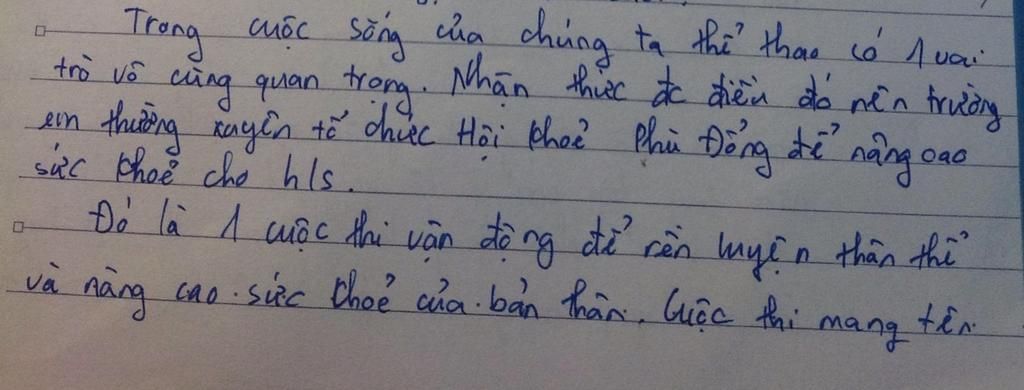 Trong cuộc sống của chúng ta thể thao có 1 vai
trò vô cùng quan trọng. Nhận thức đc điều đó nên trường
em thường xuyên tổ chức Hội khoẻ Phù Đổng để nâng cao
sức khoẻ cho h/s.
Đó là 1 cuộc thi vận động để rèn luyện thân thể
và nâng cao sức khoẻ của bản thân. Cuộc thi mang tên